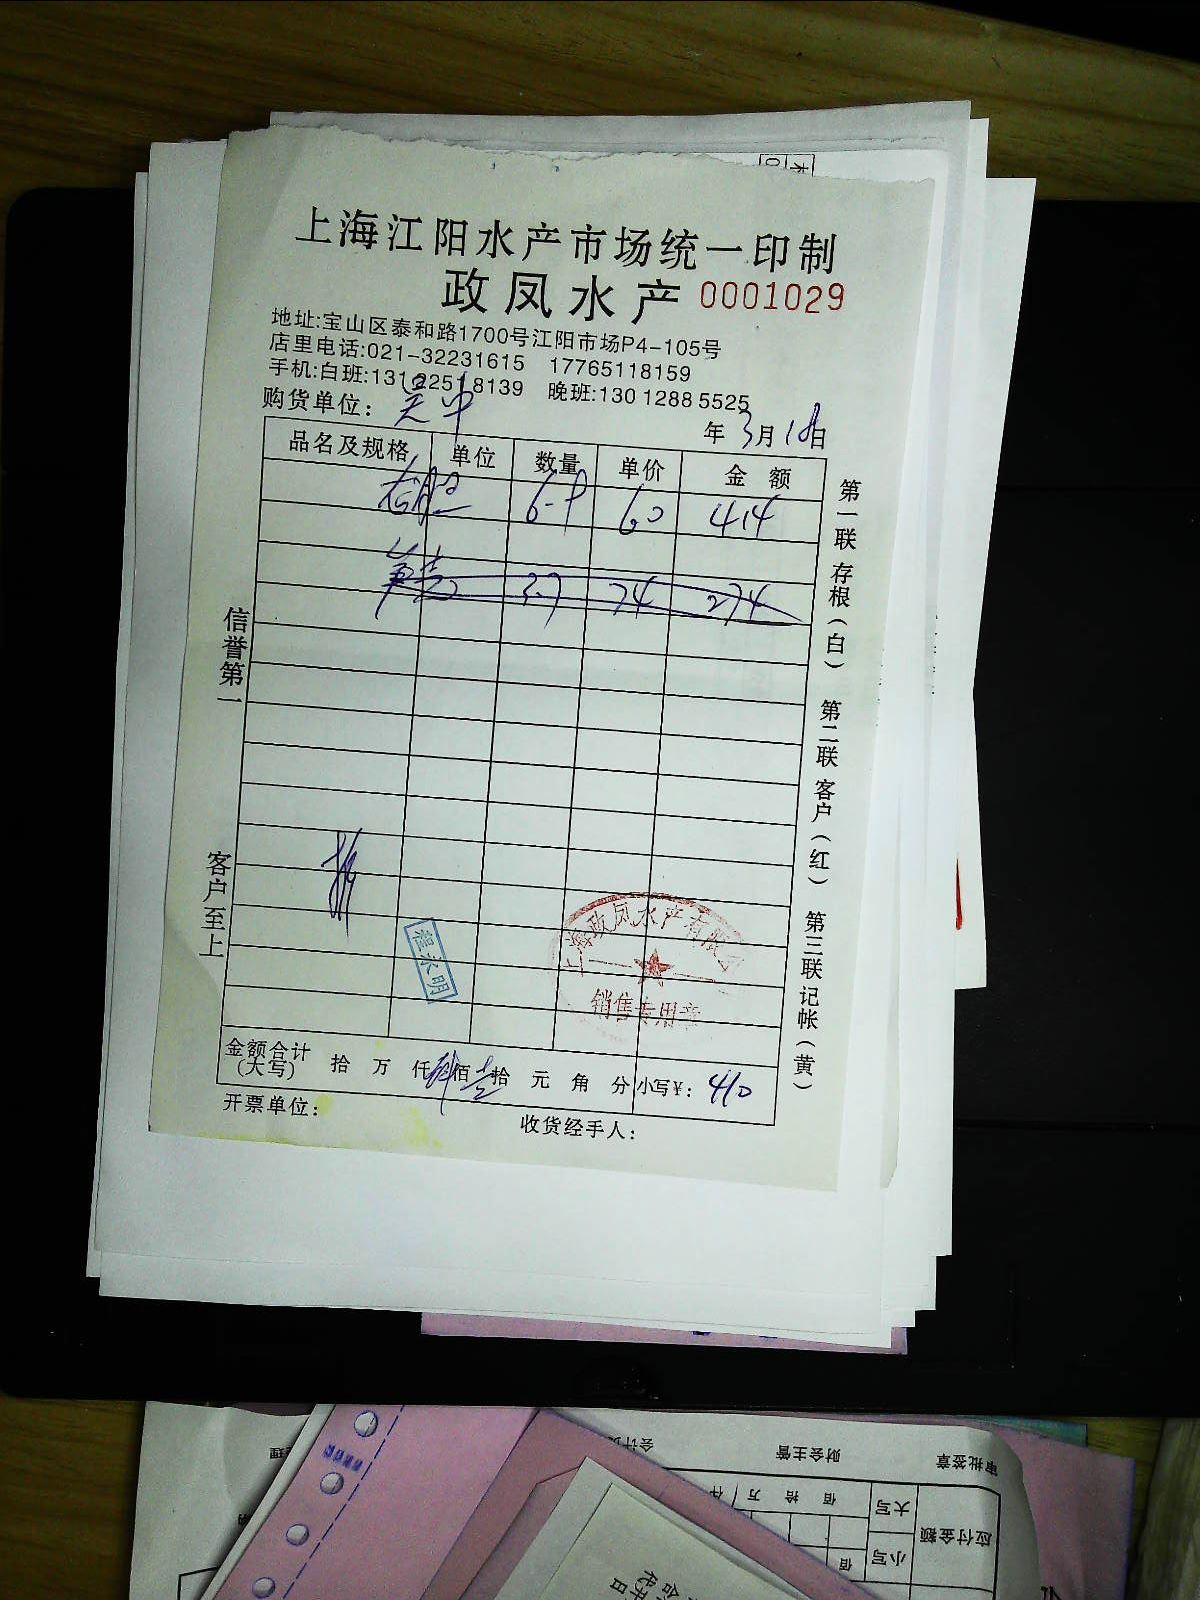 上海江阳水产市场统一印制
政凤水产 0001029
地址:宝山区泰和路1700号江阳市场P4-105号
店里电话:021-32231615 17765118159
手机:白班:131 2251 8139 晚班:130 1288 5525
购货单位: 吴中
年 3月 18日
品名及规格 单位 数量 单价 金额
60 414
3.7 74 274
信誉第一
客户至上
第一联 存根(白) 第二联 客户(红) 第三联 记帐(黄)
程永明
上海政凤水产有限公
销售专用章
金额合计(大写) 拾 万 仟 肆佰 壹拾 元 角 分 小写¥: 410
开票单位:
收货经手人:
审批签章 财会主管
应付金额
大写 万 拾 佰
小写 佰